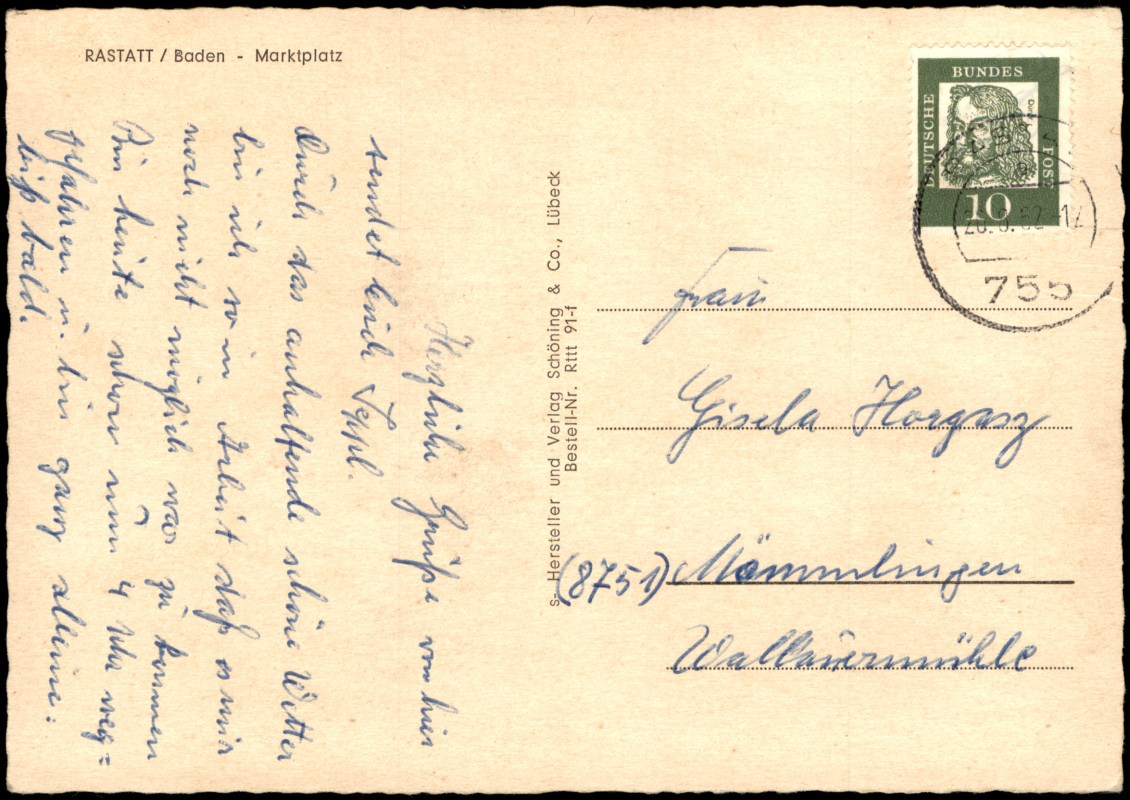 RASTATT / Baden - Marktplatz
Herzliche Grüße von hier
sendet Euch Seppl.
Durch das anhaltende schöne Wetter
bin ich so in Arbeit daß es mir
noch nicht möglich war zu kommen
Bin heute schon um 4 Uhr weg=
gefahren u. bin ganz alleine.
bis bald.
S- Hersteller und Verlag Schöning & Co., Lübeck
Bestell-Nr. Rttt 91-f
DEUTSCHE
BUNDES
POST
10
755
Frau
Gisela Horgasz
(8751) Mömmlingen
Wallauermühle